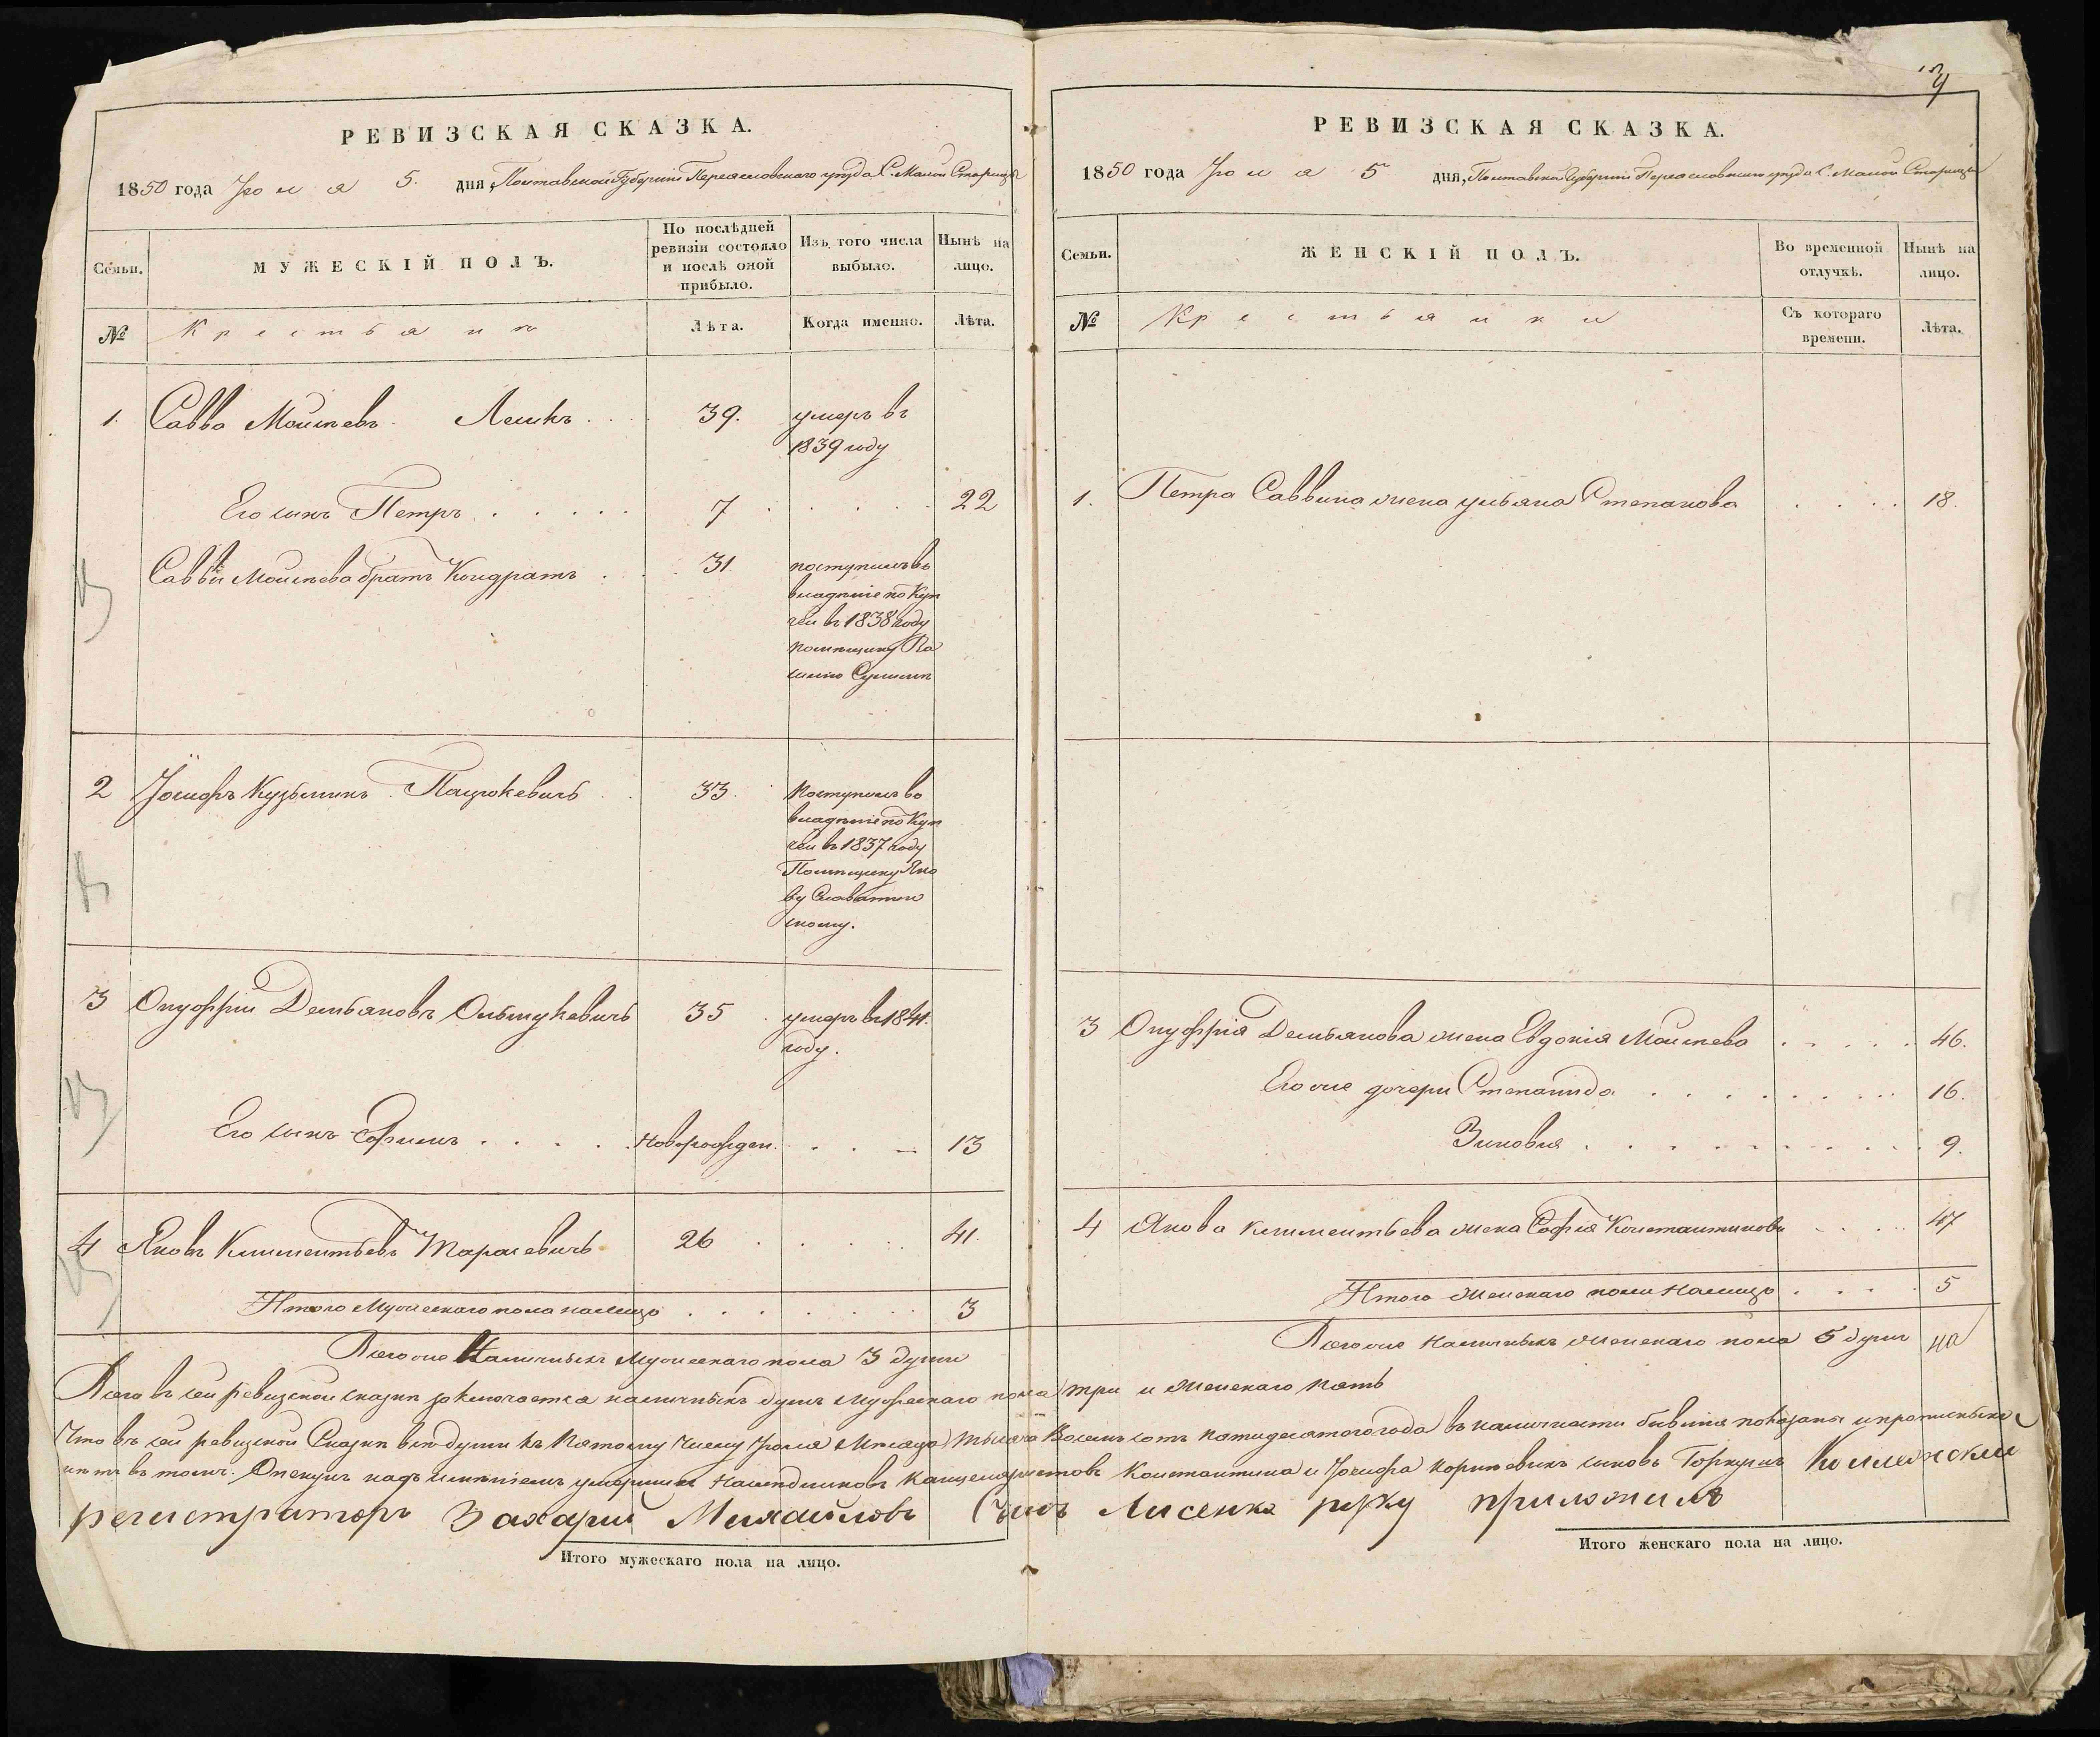 РЕВИЗСКАЯ СКАЗКА.
1850 года Июля 5. дня, Полтавской Губернии Переяславского уезда С. Малой Старицы
Семьи.
МУЖЕСКІЙ ПОЛЪ.
По послѣдней ревизіи состояло и послѣ оной прибыло.
Изъ того числа выбыло.
Нынѣ на лицо.
№
Крестьяне
Лѣта.
Когда именно.
Лѣта.
1. Савва Моисеевъ Лешкъ 39. умеръ въ
1839 году
Его сынъ Петръ 7 22
Саввы Моисеева братъ Кондратъ 31 поступилъ во
владѣніе по Куп
чей въ 1838 году
помѣщику
2 Іосифъ Кузьминъ Пацюкевичъ 33. Поступилъ во
владѣніе по Куп
чей въ 1837 году
Помѣщику Яко
ву
скому.
3 Онуфрій Демьяновъ 35 умеръ въ 1841.
году.
Его сынъ Ефимъ Новорожден. 13
4 Яковъ Климентьевъ Тарасевичъ 26 41.
Итого Мужескаго пола налицо 3
Всего же Наличныхъ Мужескаго пола 3 души
РЕВИЗСКАЯ СКАЗКА.
1850 года Июля 5 дня, Полтавской Губерніи Переяславского уезда С. Малой Старицы
Семьи.
ЖЕНСКІЙ ПОЛЪ.
Во временной отлучкѣ.
Нынѣ на лицо.
№
Крестьянки
Съ котораго времени.
Лѣта.
1. Петра Саввина жена Ульяна Степанова 18.
3 Онуфрія Демьянова жена Евдокія Моисеева 46.
Его же дочери Степанида 16.
Зиновія 9.
4 Якова Климентьева жена Софія Константинова 47
Итого Женскаго пола Налицо 5
Всего же наличныхъ Женскаго пола 5 душъ
Всего въ сей ревизской сказкѣ заключается наличныхъ душъ мужескаго пола три и Женскаго пять
Что въ сей ревизской Сказкѣ всѣ души къ Пятому числу Июля Мѣсяца тысяча Восемь сотъ пятидесятого года въ наличности бывшія показаны и прописныхъ
нѣтъ въ томъ. Опекунъ надъ имѣніемъ умершихъ Наследниковъ Канцеляристовъ Константина и Іосифа сыновъ Коллежский
регистраторъ Захарий Михайловъ Сынъ Лисенко руку приложилъ
Итого мужескаго пола на лицо.
Итого женскаго пола на лицо.